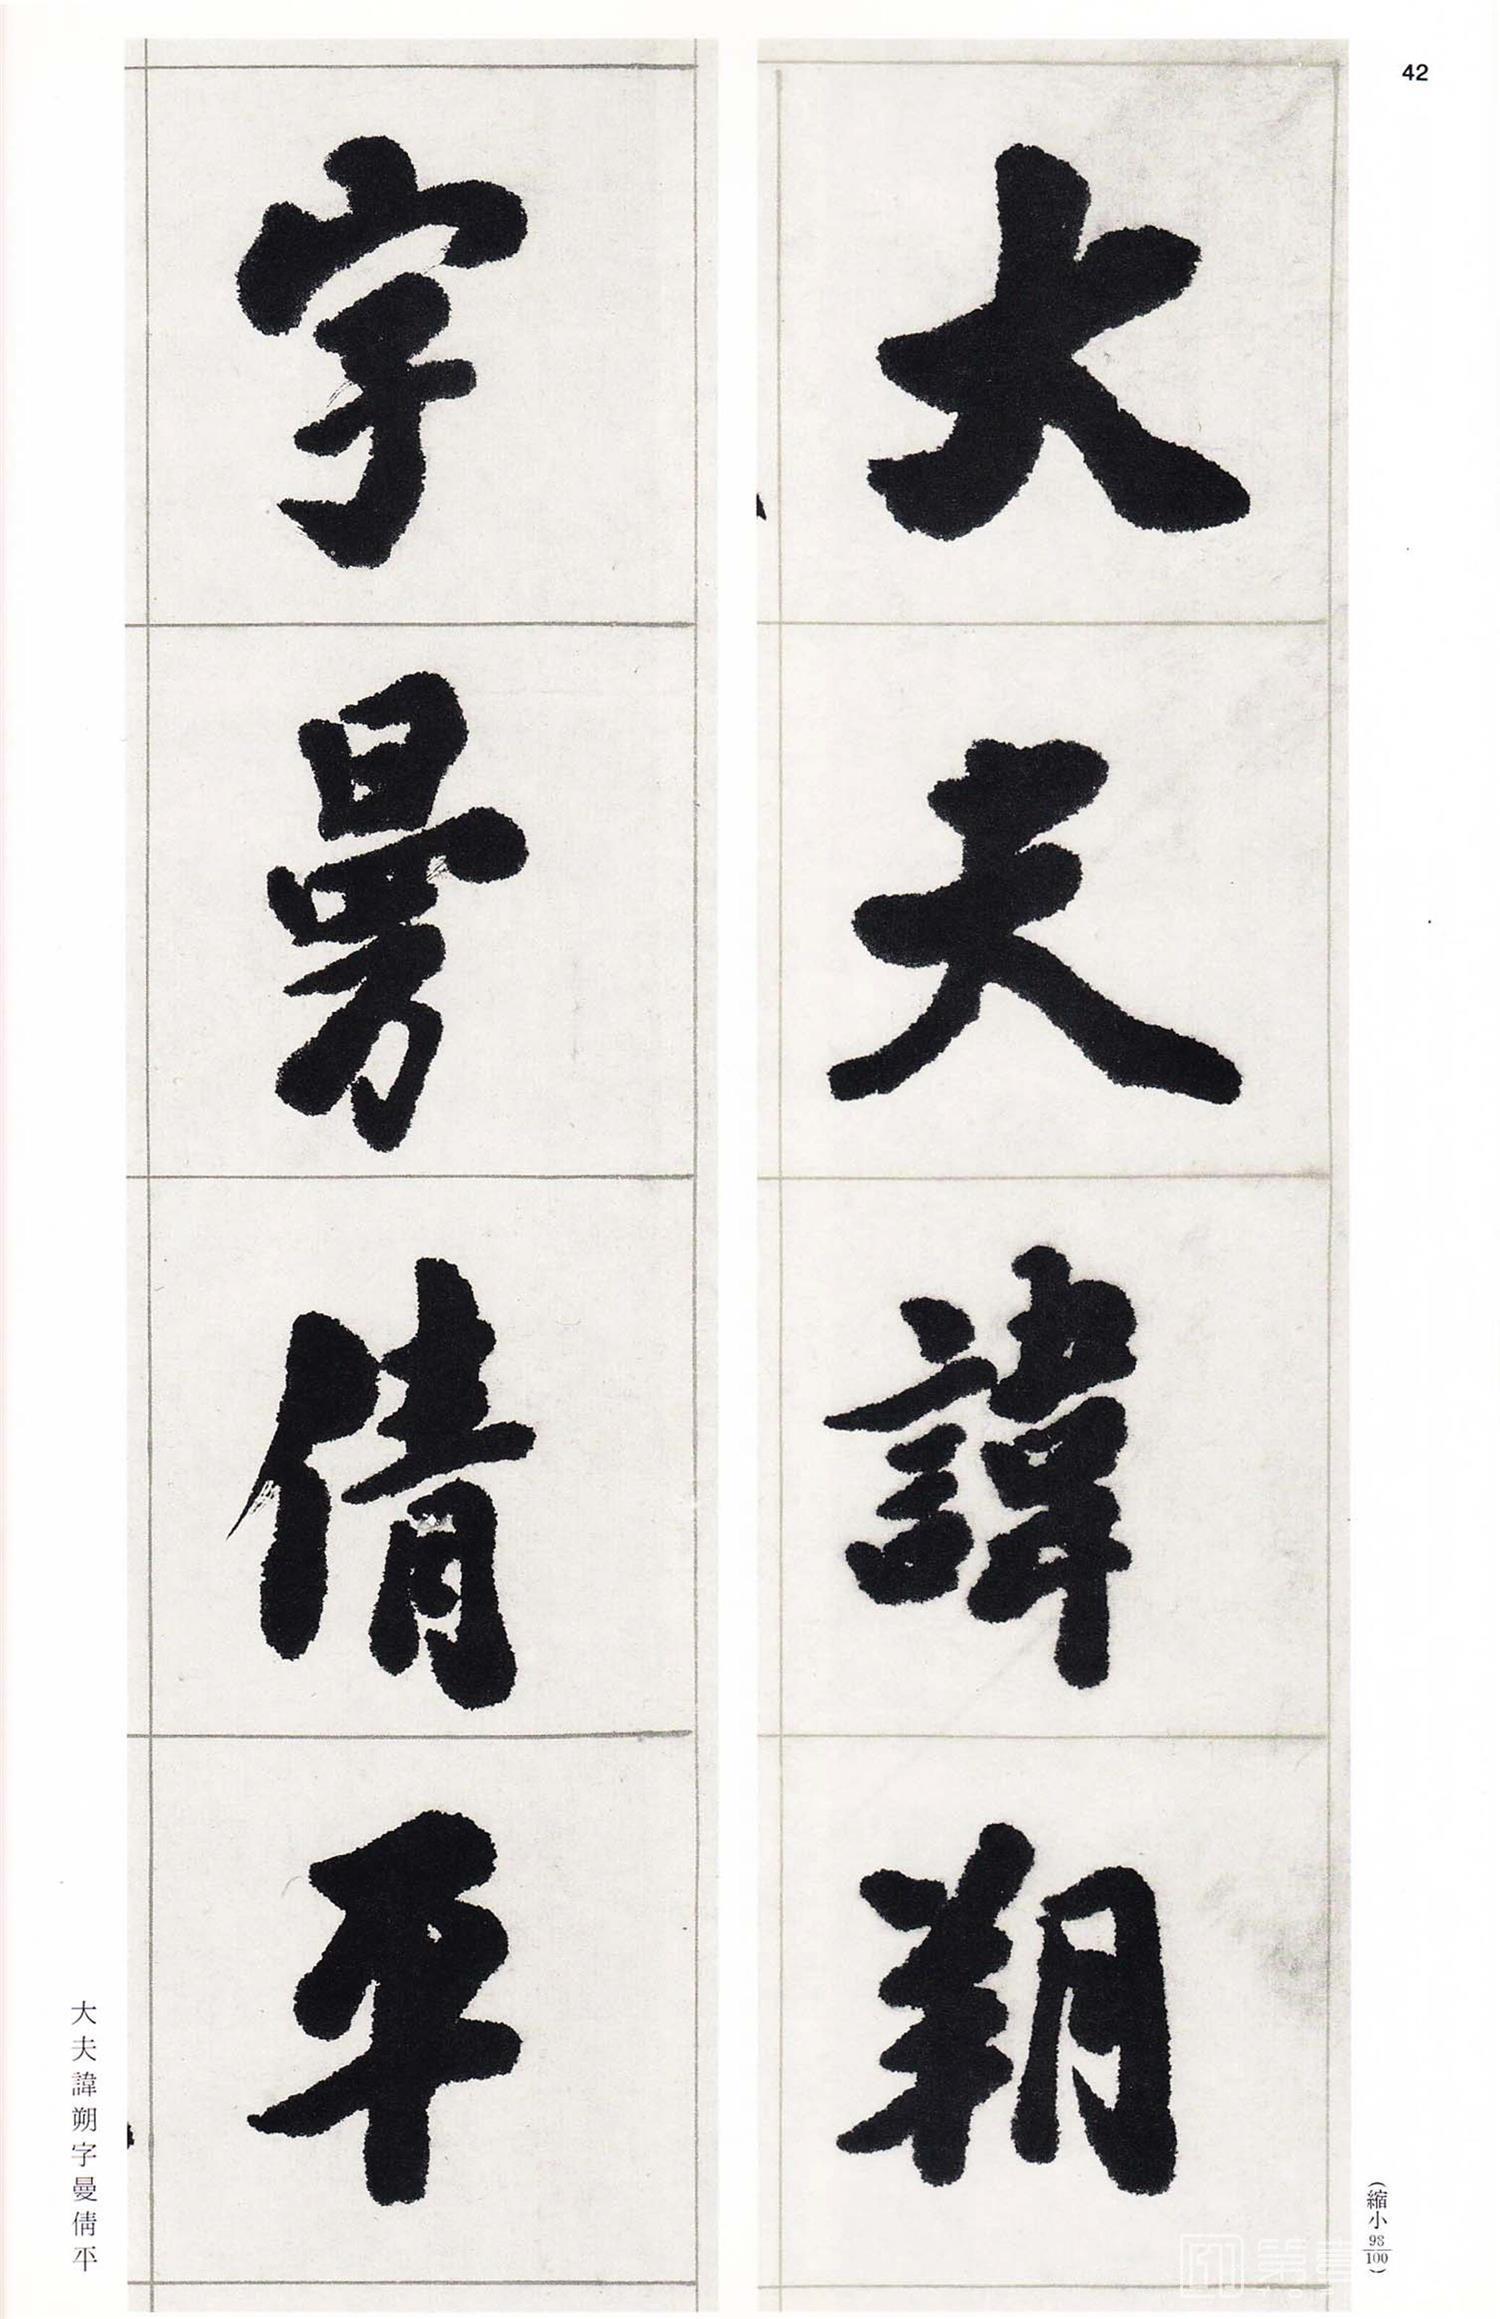 42
大夫諱朔
字曼倩平
大夫諱朔字曼倩平
(縮小98/100)